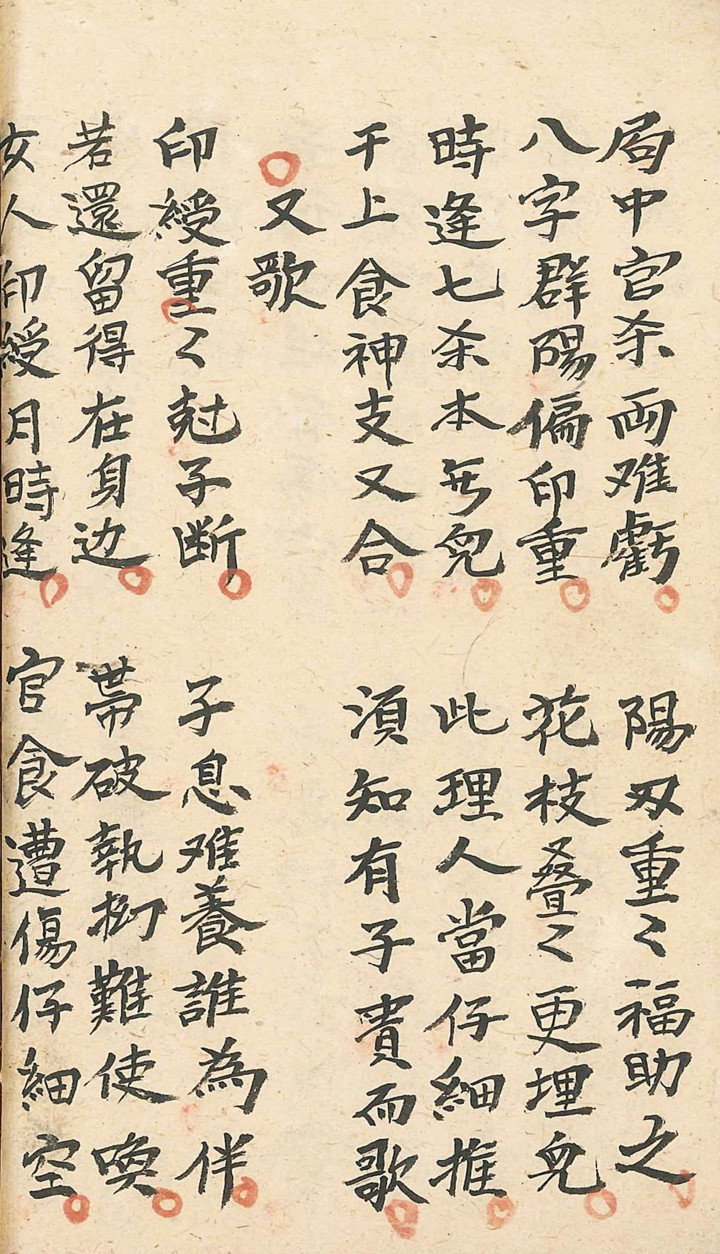 局中官杀両难虧 陽刃重〻福助之
八字群陽偏印重 花枝叠〻更埋兒
時逢七杀本旡兒 此理人當仔細推
干上食神支又合 須知有子貴而歌
又歌
印綬重〻尅子断 子息难養誰為伴
若還留得在身边 帯破執拗難使喚
女人印綬月時逢 官食遭傷仔細空